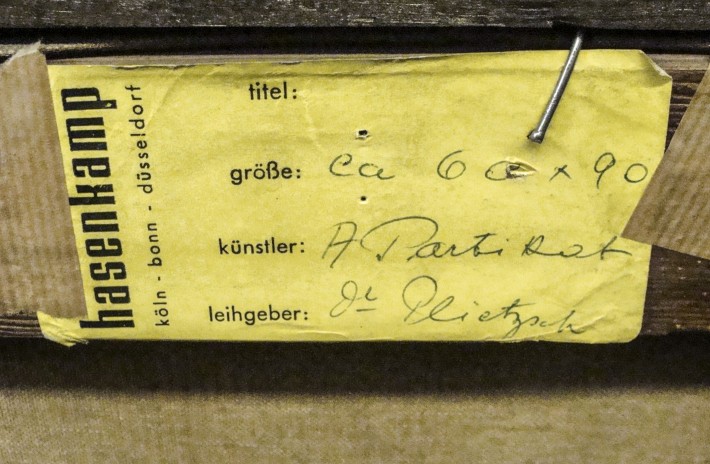 hasenkamp
köln - bonn - düsseldorf
titel:
größe: ca 60 x 90
künstler: A Partikat
leihgeber: Dr Plietzsch